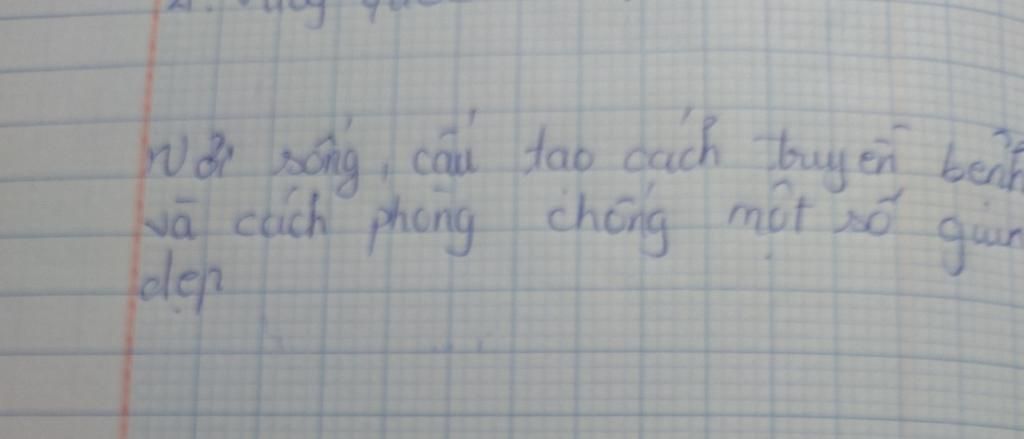 Nơi sống, cấu tạo cách truyền bệnh
và cách phòng chống một số giun
dẹp